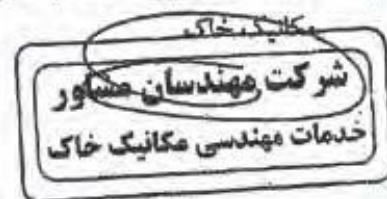 مکانیک خاک
شرکت مهندسان مشاور
خدمات مهندسی مکانیک خاک